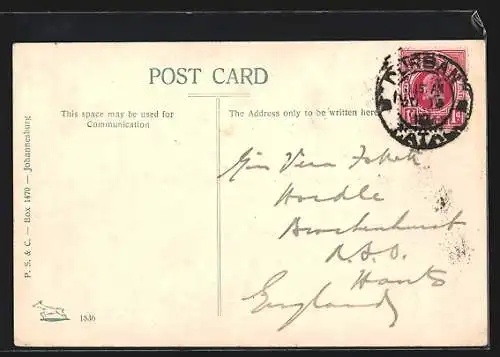 POST CARD
This space may be used for
Communication
The Address only to be written here
DURBAN
NATAL
P. S. & C. — Box 1470 — Johannesburg
1836
Miss Vera
Hordle
Brockenhurst
R.S.O.
Hants
England